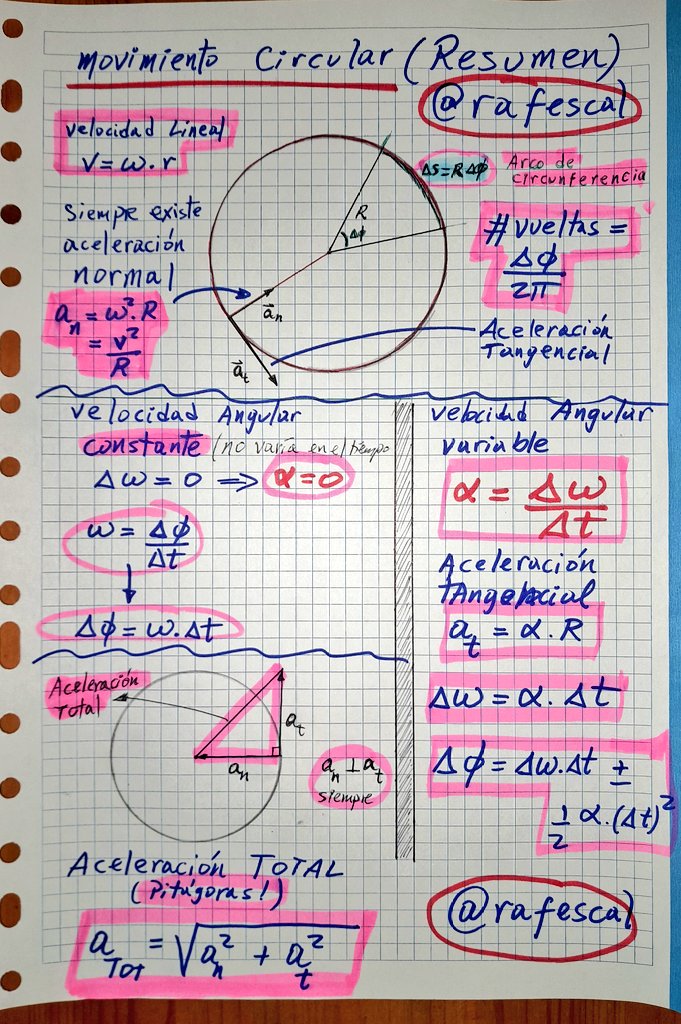 Movimiento Circular (Resumen)
@rafescal
Velocidad Lineal
V = ω. r
Siempre existe
aceleración
normal
a_n = ω². R
= v²/R
ΔS = R Δϕ
Arco de
circunferencia
R
Δϕ
# vueltas =
Δϕ/2π
a⃗_n
a⃗_t
Aceleración
Tangencial
Velocidad Angular
constante (no varía en el tiempo
Δω = 0 ⟹ α = 0
ω = Δϕ/Δt
Δϕ = ω. Δt
Velocidad Angular
variable
α = Δω/Δt
Aceleración
Tangencial
a_t = α. R
Δω = α. Δt
Δϕ = Δω. Δt ±
1/2 α. (Δt)²
Aceleración
Total
a_t
a_n
a_n ⊥ a_t
siempre
Aceleración TOTAL
(Pitágoras!)
a_Tot = √a_n² + a_t²
@rafescal